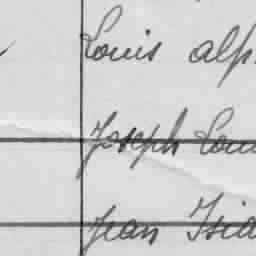 Louis alp
Joseph Lou
Jean Isid